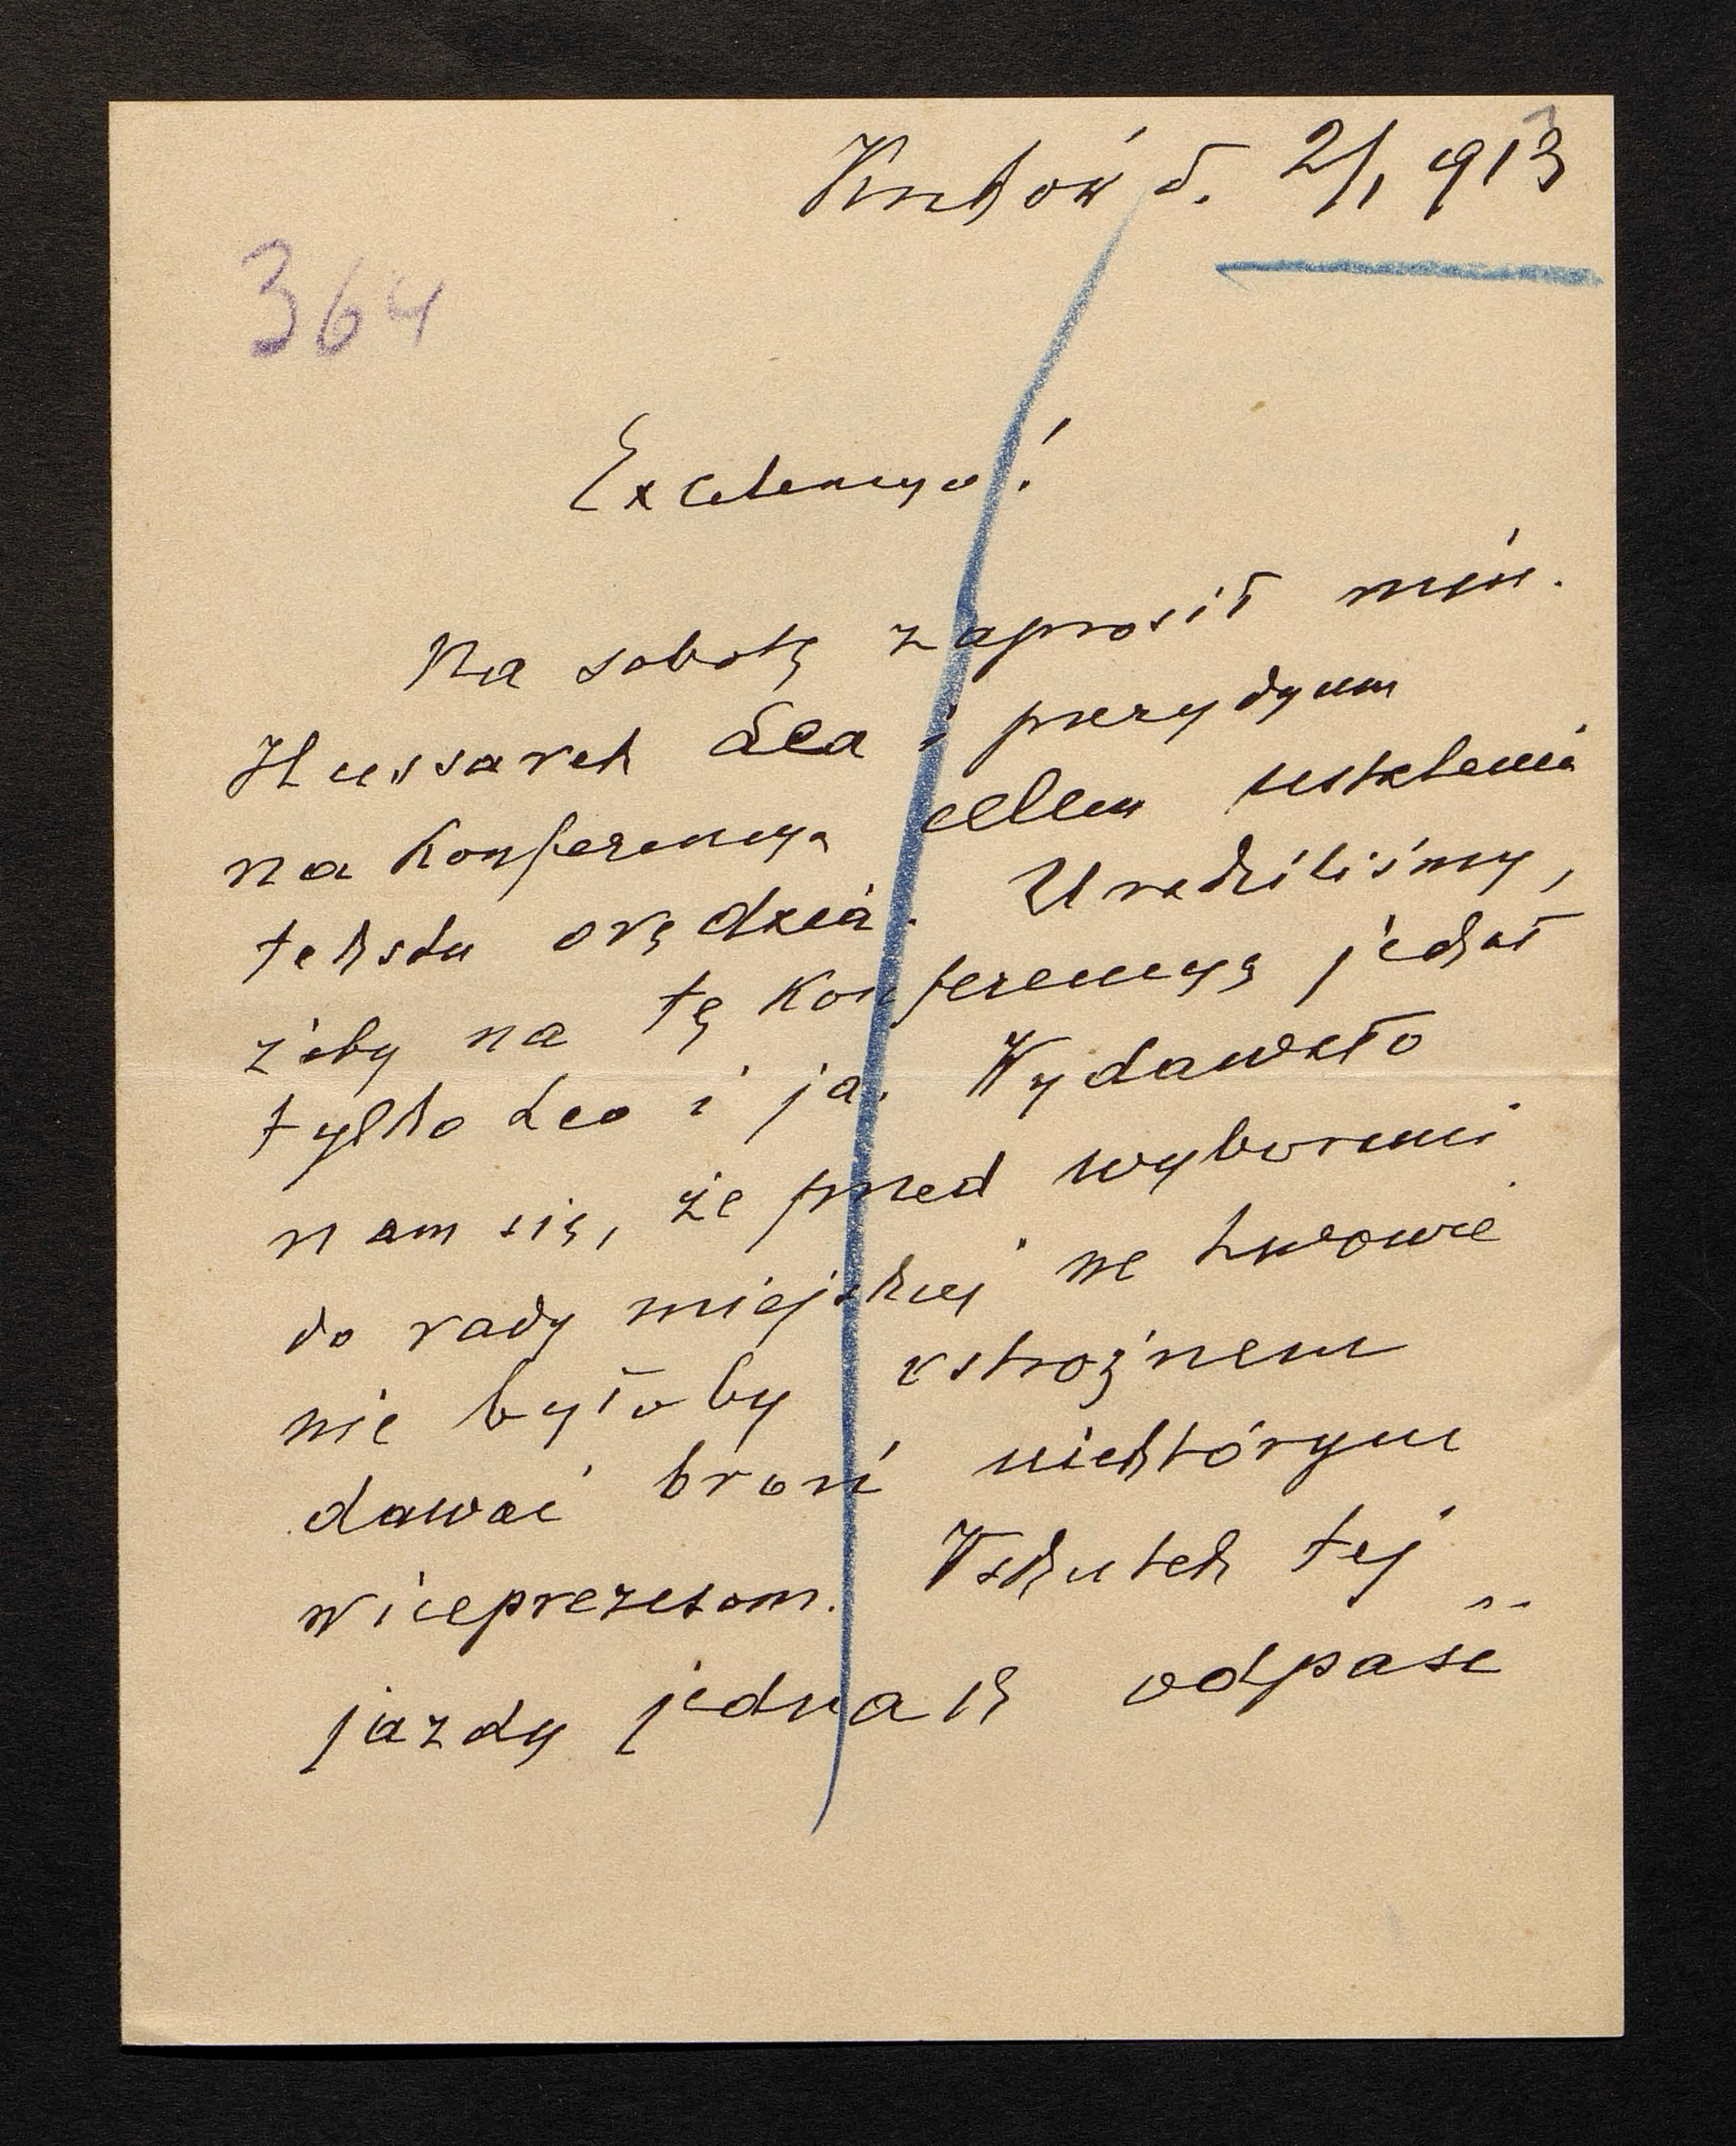 Kraków d. 2/1 913
364
Excelencyo!
Na sobotę zaprosił min.
Hussarek Lea i prezydyum
na konferencyą celem ustalenia
tekstu orędzia. Uradziliśmy,
żeby na tę konferencyą jechał
tylko Leo i ja. Wydawało
nam się, że przed wyborami
do rady miejskiej we Lwowie
nie byłoby ostrożnem
dawać broń niektórym
wiceprezesom. Wskutek tej
jazdy jednak odpaść